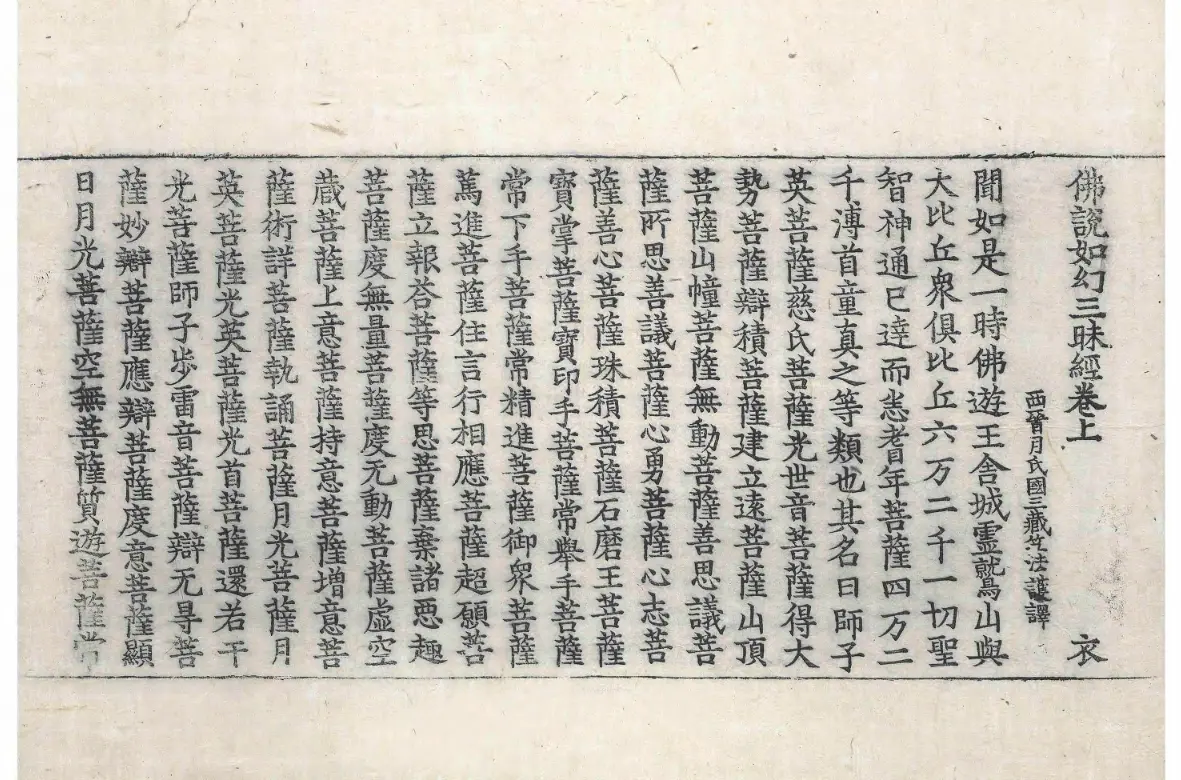 佛說如幻三昧經卷上 衣
西晉月氏國三藏竺法護譯
聞如是一時佛遊王舍城靈鷲山與
大比丘衆俱比丘六万二千一切聖
智神通已達而悉耆年菩薩四万二
千溥首童真之等類也其名曰師子
英菩薩慈氏菩薩光世音菩薩得大
勢菩薩辯積菩薩建立遠菩薩山頂
菩薩山幢菩薩無動菩薩善思議菩
薩所思善議菩薩心勇菩薩心志菩
薩善心菩薩珠積菩薩石磨王菩薩
寶掌菩薩寶印手菩薩常舉手菩薩
常下手菩薩常精進菩薩御衆菩薩
篤進菩薩住言行相應菩薩超願菩
薩立報荅菩薩等思菩薩棄諸惡趣
菩薩度無量菩薩度无動菩薩虛空
蔵菩薩上意菩薩持意菩薩增意菩
薩術詳菩薩執誦菩薩月光菩薩月
英菩薩光英菩薩光首菩薩還若干
光菩薩師子步雷音菩薩辯无㝵菩
薩妙辯菩薩應辯菩薩度意菩薩顯
日月光菩薩空無菩薩質遊菩薩常